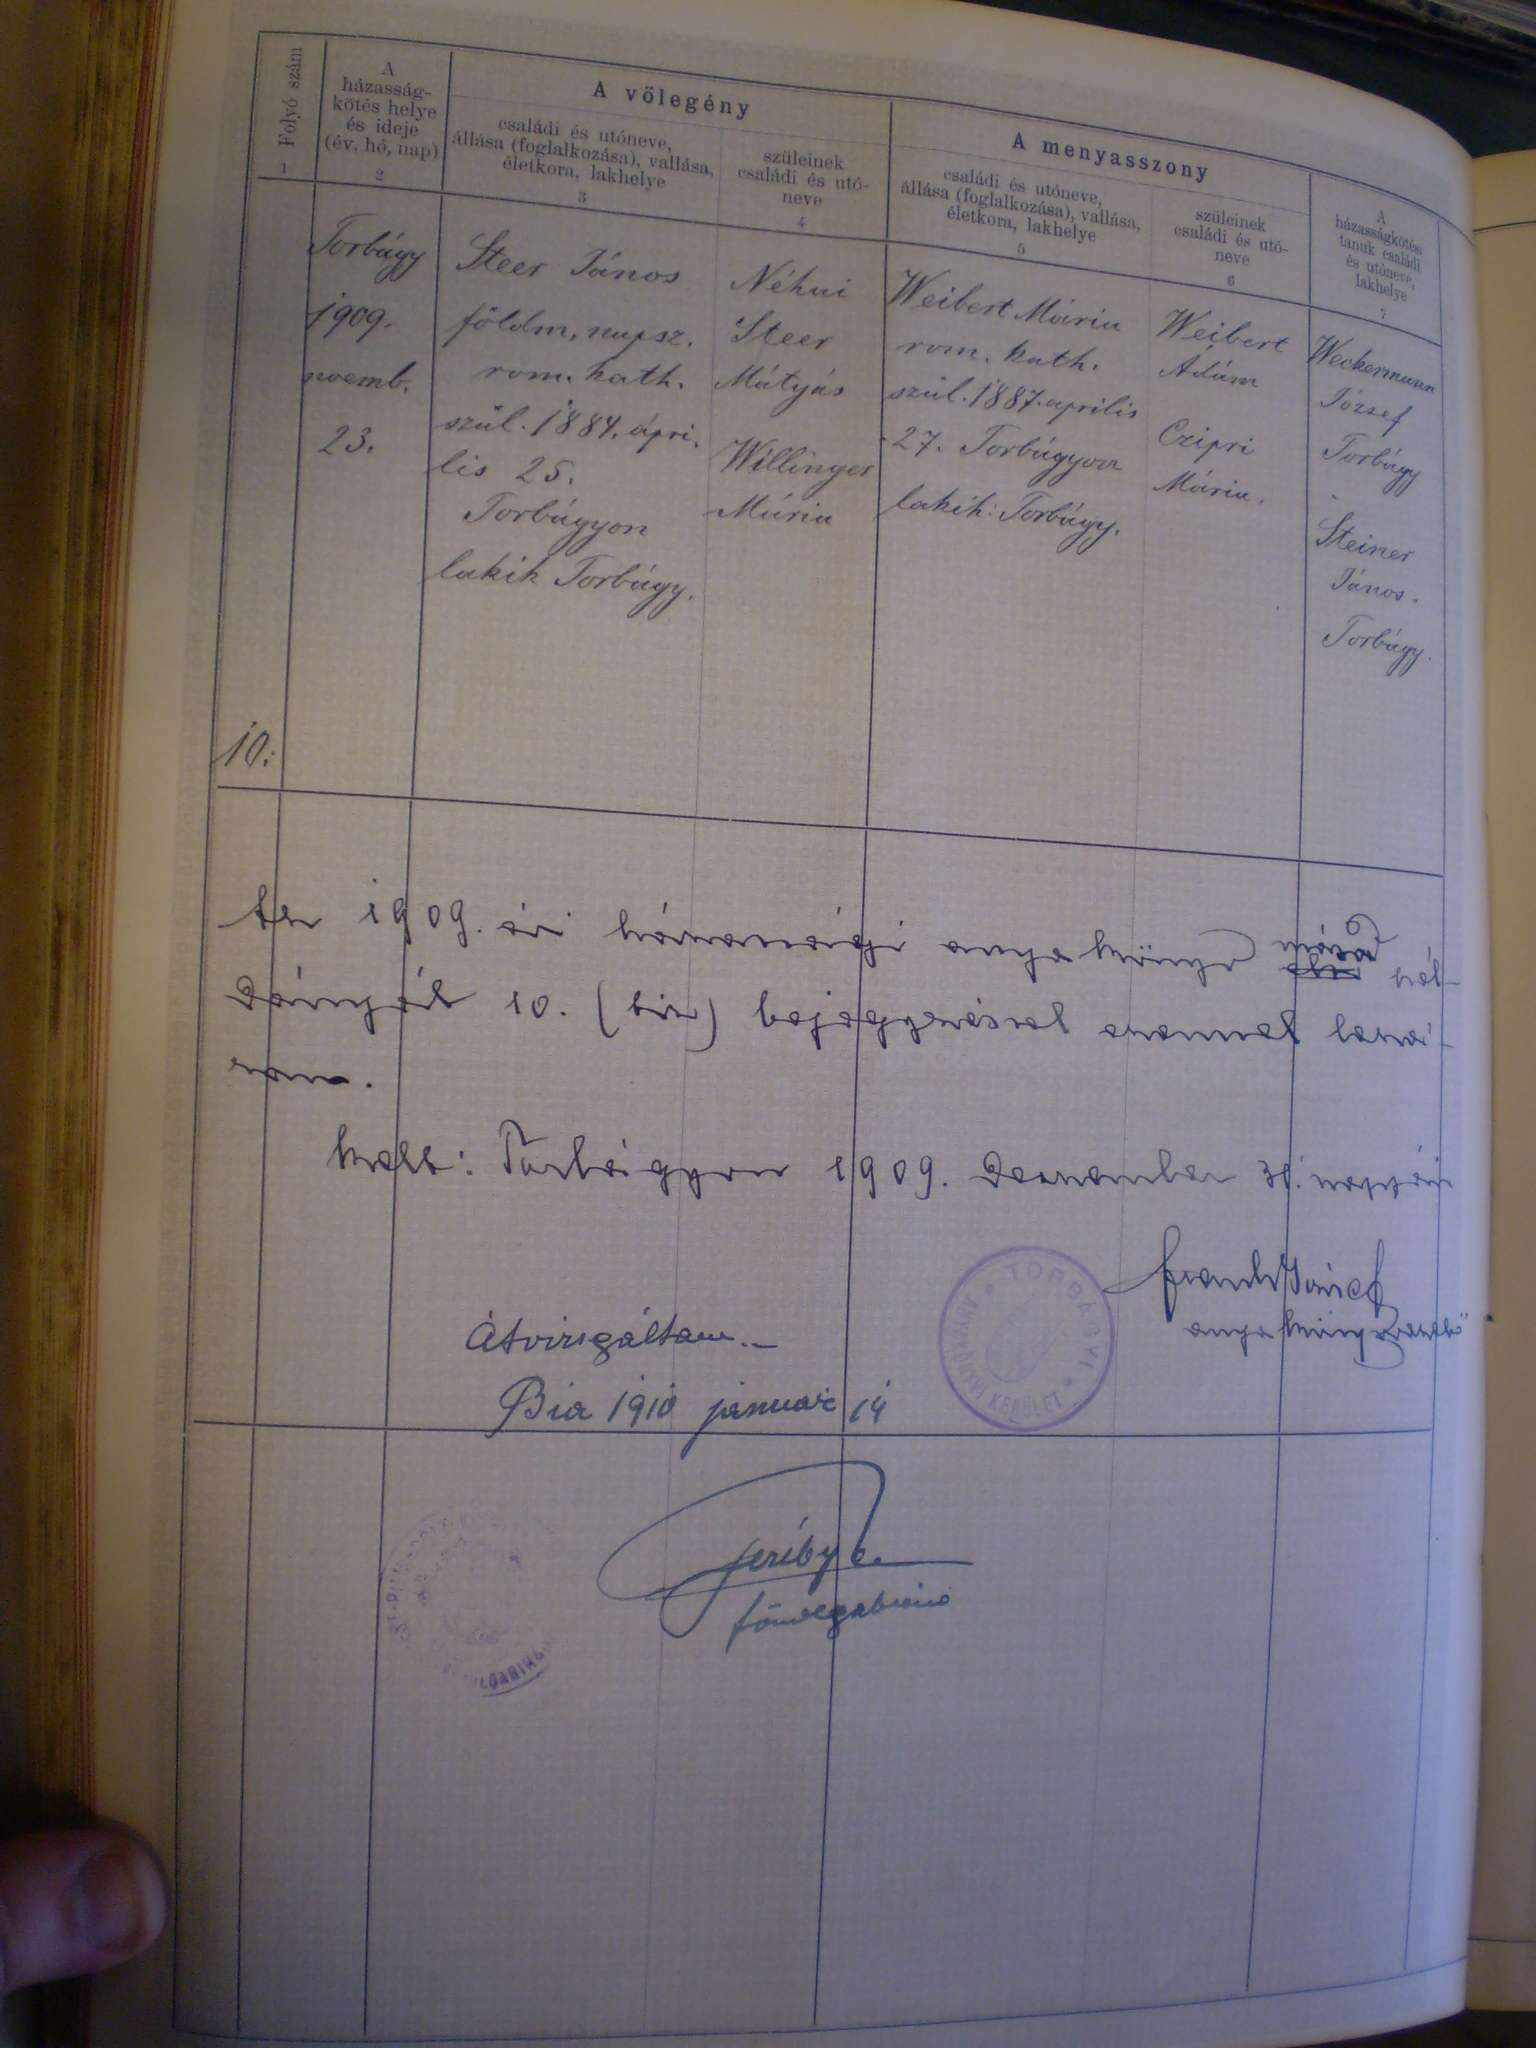 Folyó szám
1
A
házasság-
kötés helye
és ideje
(év, hó, nap)
2
A vőlegény
családi és utóneve,
állása (foglalkozása), vallása,
életkora, lakhelye
3
szüleinek
családi és utó-
neve
4
A menyasszony
családi és utóneve,
állása (foglalkozása), vallása,
életkora, lakhelye
5
szüleinek
családi és utó-
neve
6
A
házasságkötési
tanuk családi
és utóneve,
lakhelye
7
10.
Torbágy
1909.
novemb.
23.
Steer János
földm. napsz.
rom. kath.
szül. 1884. ápri-
lis 25.
Torbágyon
lakik Torbágy.
Néhai
Steer
Mátyás
Willinger
Mária
Weibert Mária
rom. kath.
szül. 1887. április
27. Torbágyon
lakik: Torbágy.
Weibert
Ádám
Czipri
Mária.
Weckermann
József
Torbágy
Steiner
János.
Torbágy.
Az 1909. évi házassági anyakönyv másod pél-
dányát 10. (tiz) bejegyzéssel ezennel lezá-
rom.
Kelt: Torbágyon 1909. Deczember 31. napján
József
anyakönyvvezető
TORBÁGYI ANYAKÖNYVI KERÜLET
Átvizsgáltam.—
Bia 1910 január 14
főszolgabiró